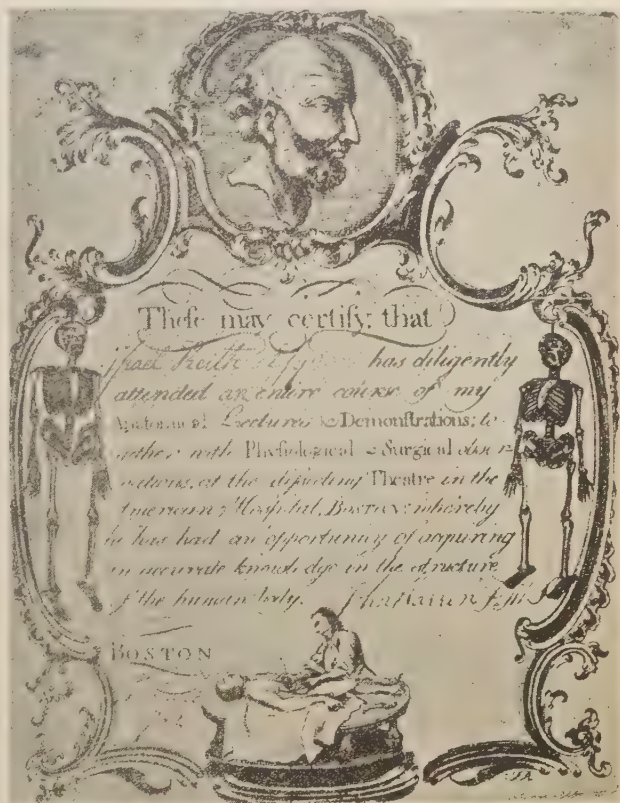 These may certify, that
Israel Keith has diligently
attended an entire course of my
Anatomical Lectures & Demonstrations; to
gether with Phisiological & Surgical obser
vations, at the dissecting Theatre in the
American Hospital, Boston; whereby
he has had an opportunity of acquiring
an accurate knowledge in the structure
of the human body.
BOSTON